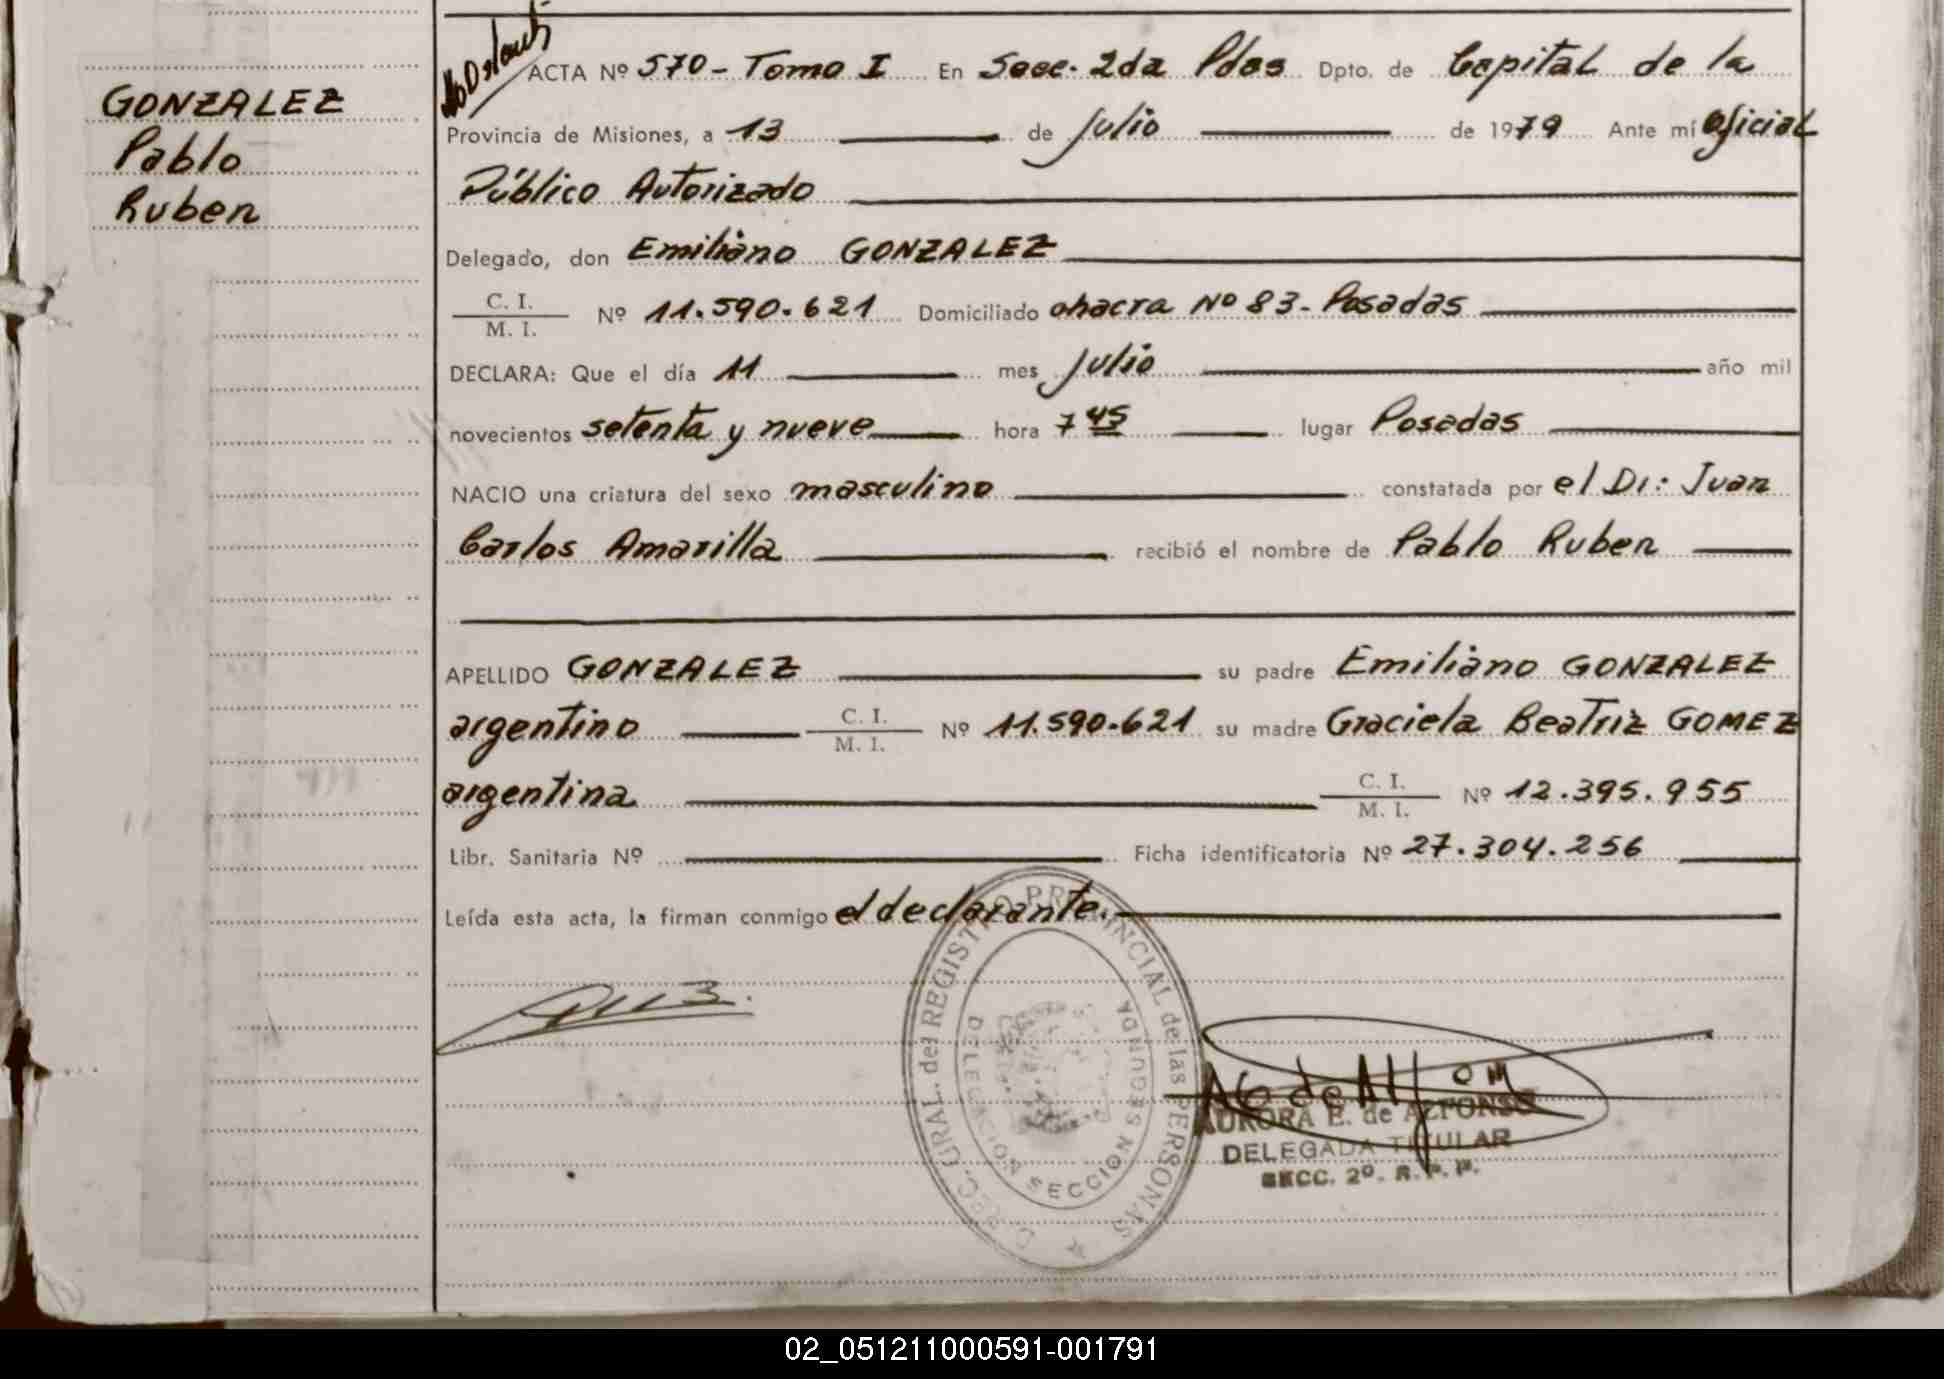 GONZALEZ
Pablo
Ruben
ACTA Nº 570 - Tomo I En Secc. 2da Pdas Dpto. de Capital de la
Provincia de Misiones, a 13 de Julio de 1979 Ante mí Oficial
Público Autorizado
Delegado, don Emiliano GONZALEZ
C. I.
M. I. Nº 11.590.621 Domiciliado chacra Nº 83 - Posadas
DECLARA: Que el día 11 mes Julio año mil
novecientos setenta y nueve hora 7 45 lugar Posadas
NACIO una criatura del sexo masculino constatada por el Dr: Juan
Carlos Amarilla recibió el nombre de Pablo Ruben
APELLIDO GONZALEZ su padre Emiliano GONZALEZ
argentino C. I.
M. I. Nº 11.590.621 su madre Graciela Beatriz GOMEZ
argentina C. I.
M. I. Nº 12.395.955
Libr. Sanitaria Nº Ficha identificatoria Nº 27.304.256
Leída esta acta, la firman conmigo el declarante.
DIREC. GRAL. del REGISTRO PROVINCIAL de las PERSONAS
DELEGACION SECCION SEGUNDA
AURORA E. de ALFONSO
DELEGADA TITULAR
SECC. 2º. R. P. P.
02_051211000591-001791